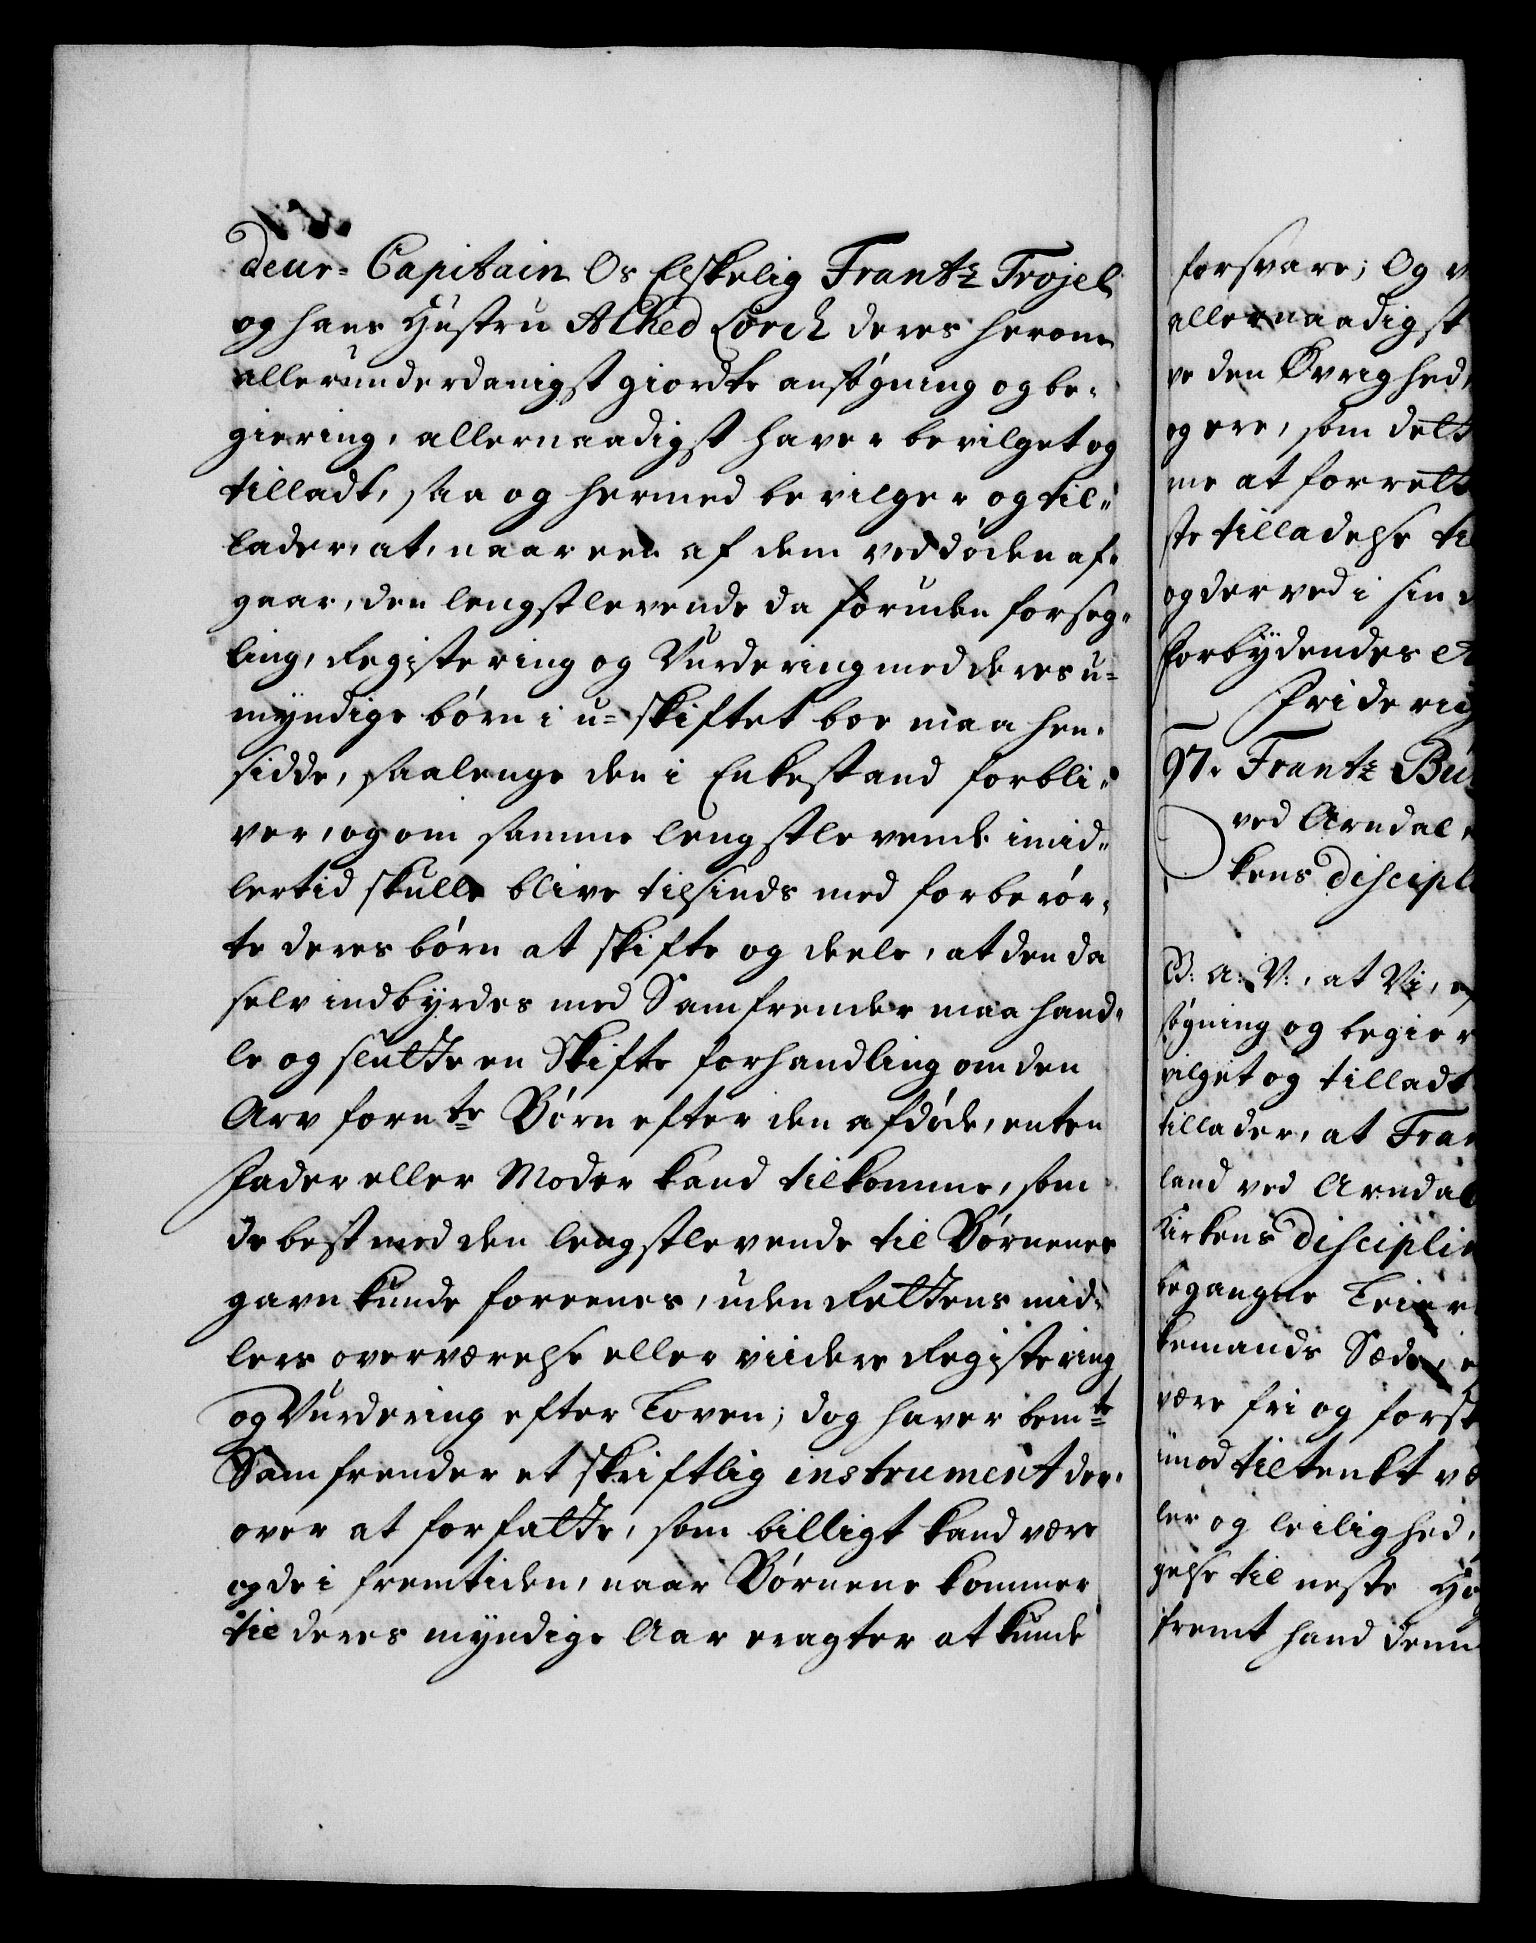 deur- Capitain Os Elskelig Frantz Trojel
og hans Hustru Alhed Lorch deres herom
allerunderdanigst giordte ansøgning og be-
giering, allernaadigst haver bevilget og
tilladt, saa og hermed bevilger og til-
lader, at, naar een af dem ved døden af-
gaar, den lengstlevende da foruden forseg-
ling, Registering og Vurdering med deres u-
myndige børn i u-skiftet boe maa hen-
sidde, saalenge den i Enkestand forbli-
ver, og om samme lengstlevende imid-
lertid skulle blive tilsinds med forberør-
te deres børn at skifte og deele, at den da
selv indbyrdes med Samfrender maa hand-
le og slutte en Skifte forhandling om den
Arv fornte Børn efter den afdøde, enten
Fader eller Moder kand tilkomme, som
de best med den lengstlevende til Børnenes
gavn kunde foreenes, uden Rettens mid-
lers overværelse eller viidere Registering
og Vurdering efter Loven; dog haver bemte
Samfrender et skriftlig instrument der-
over at forfatte, som billigt kand være
og de i fremtiden, naar Børnene kommer
til deres myndige Aar eragter at kunde
forsvare; Og
allernaadigst
ve den Øvrighed
og ere, som dett
me at forrett
ste tilladelse til
og derved i sin
Forbydendes
Friderichs
97. Frantz
ved Arndal
kens Discipl
B: A: V:, at Vi,
søgning og begier
vilget og tilladt
tillader, at Fran
land ved Arndal
Kirkens Disciplin
begangne Leier
temands Sæde,
være fri og forsk
imod tiltenkt
ler og leilighed,
gelse til neste
fremt hand denn